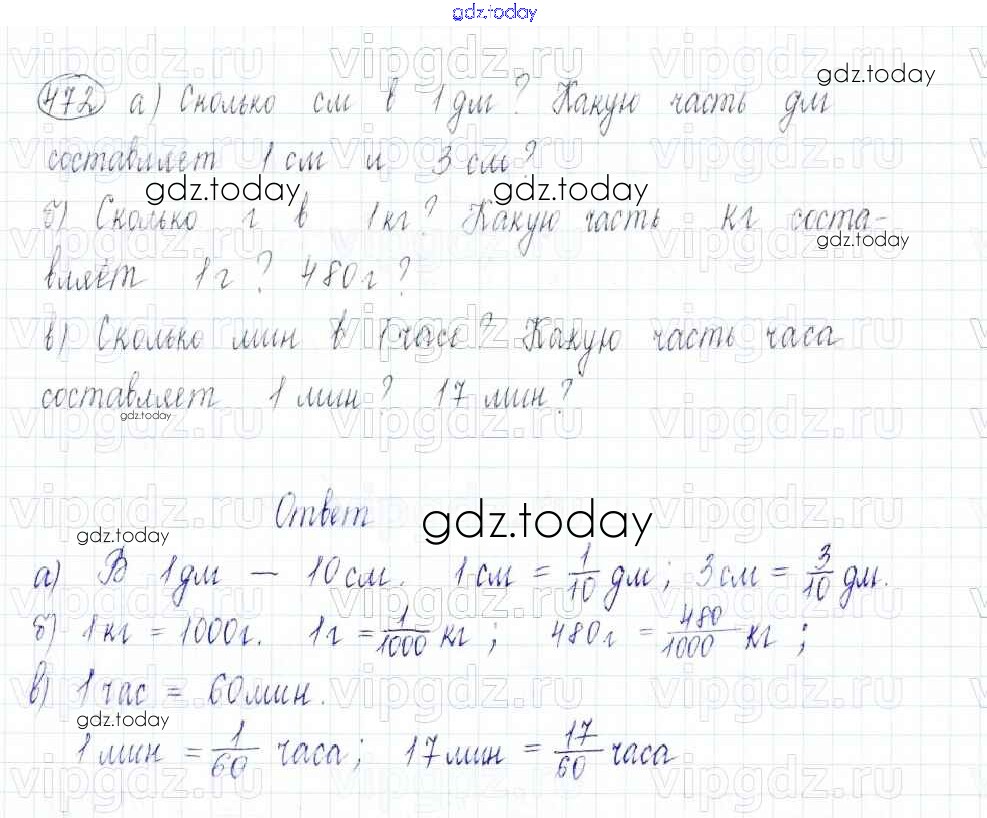 gdz.today
vipgdz.ru vipgdz.ru vipgdz.ru
gdz.today
472 а) Сколько см в 1 дм? Какую часть дм
составляет 1 см и 3 см?
gdz.today gdz.today
б) Сколько г в 1 кг? Какую часть кг соста-
gdz.today
вляет 1 г? 480 г?
в) Сколько мин в 1 часе? Какую часть часа
составляет 1 мин? 17 мин?
gdz.today
Ответ
gdz.today gdz.today
а) В 1 дм — 10 см. 1 см = 1/10 дм; 3 см = 3/10 дм.
б) 1 кг = 1000 г. 1 г = 1/1000 кг; 480 г = 480/1000 кг;
в) 1 час = 60 мин.
gdz.today
1 мин = 1/60 часа; 17 мин = 17/60 часа